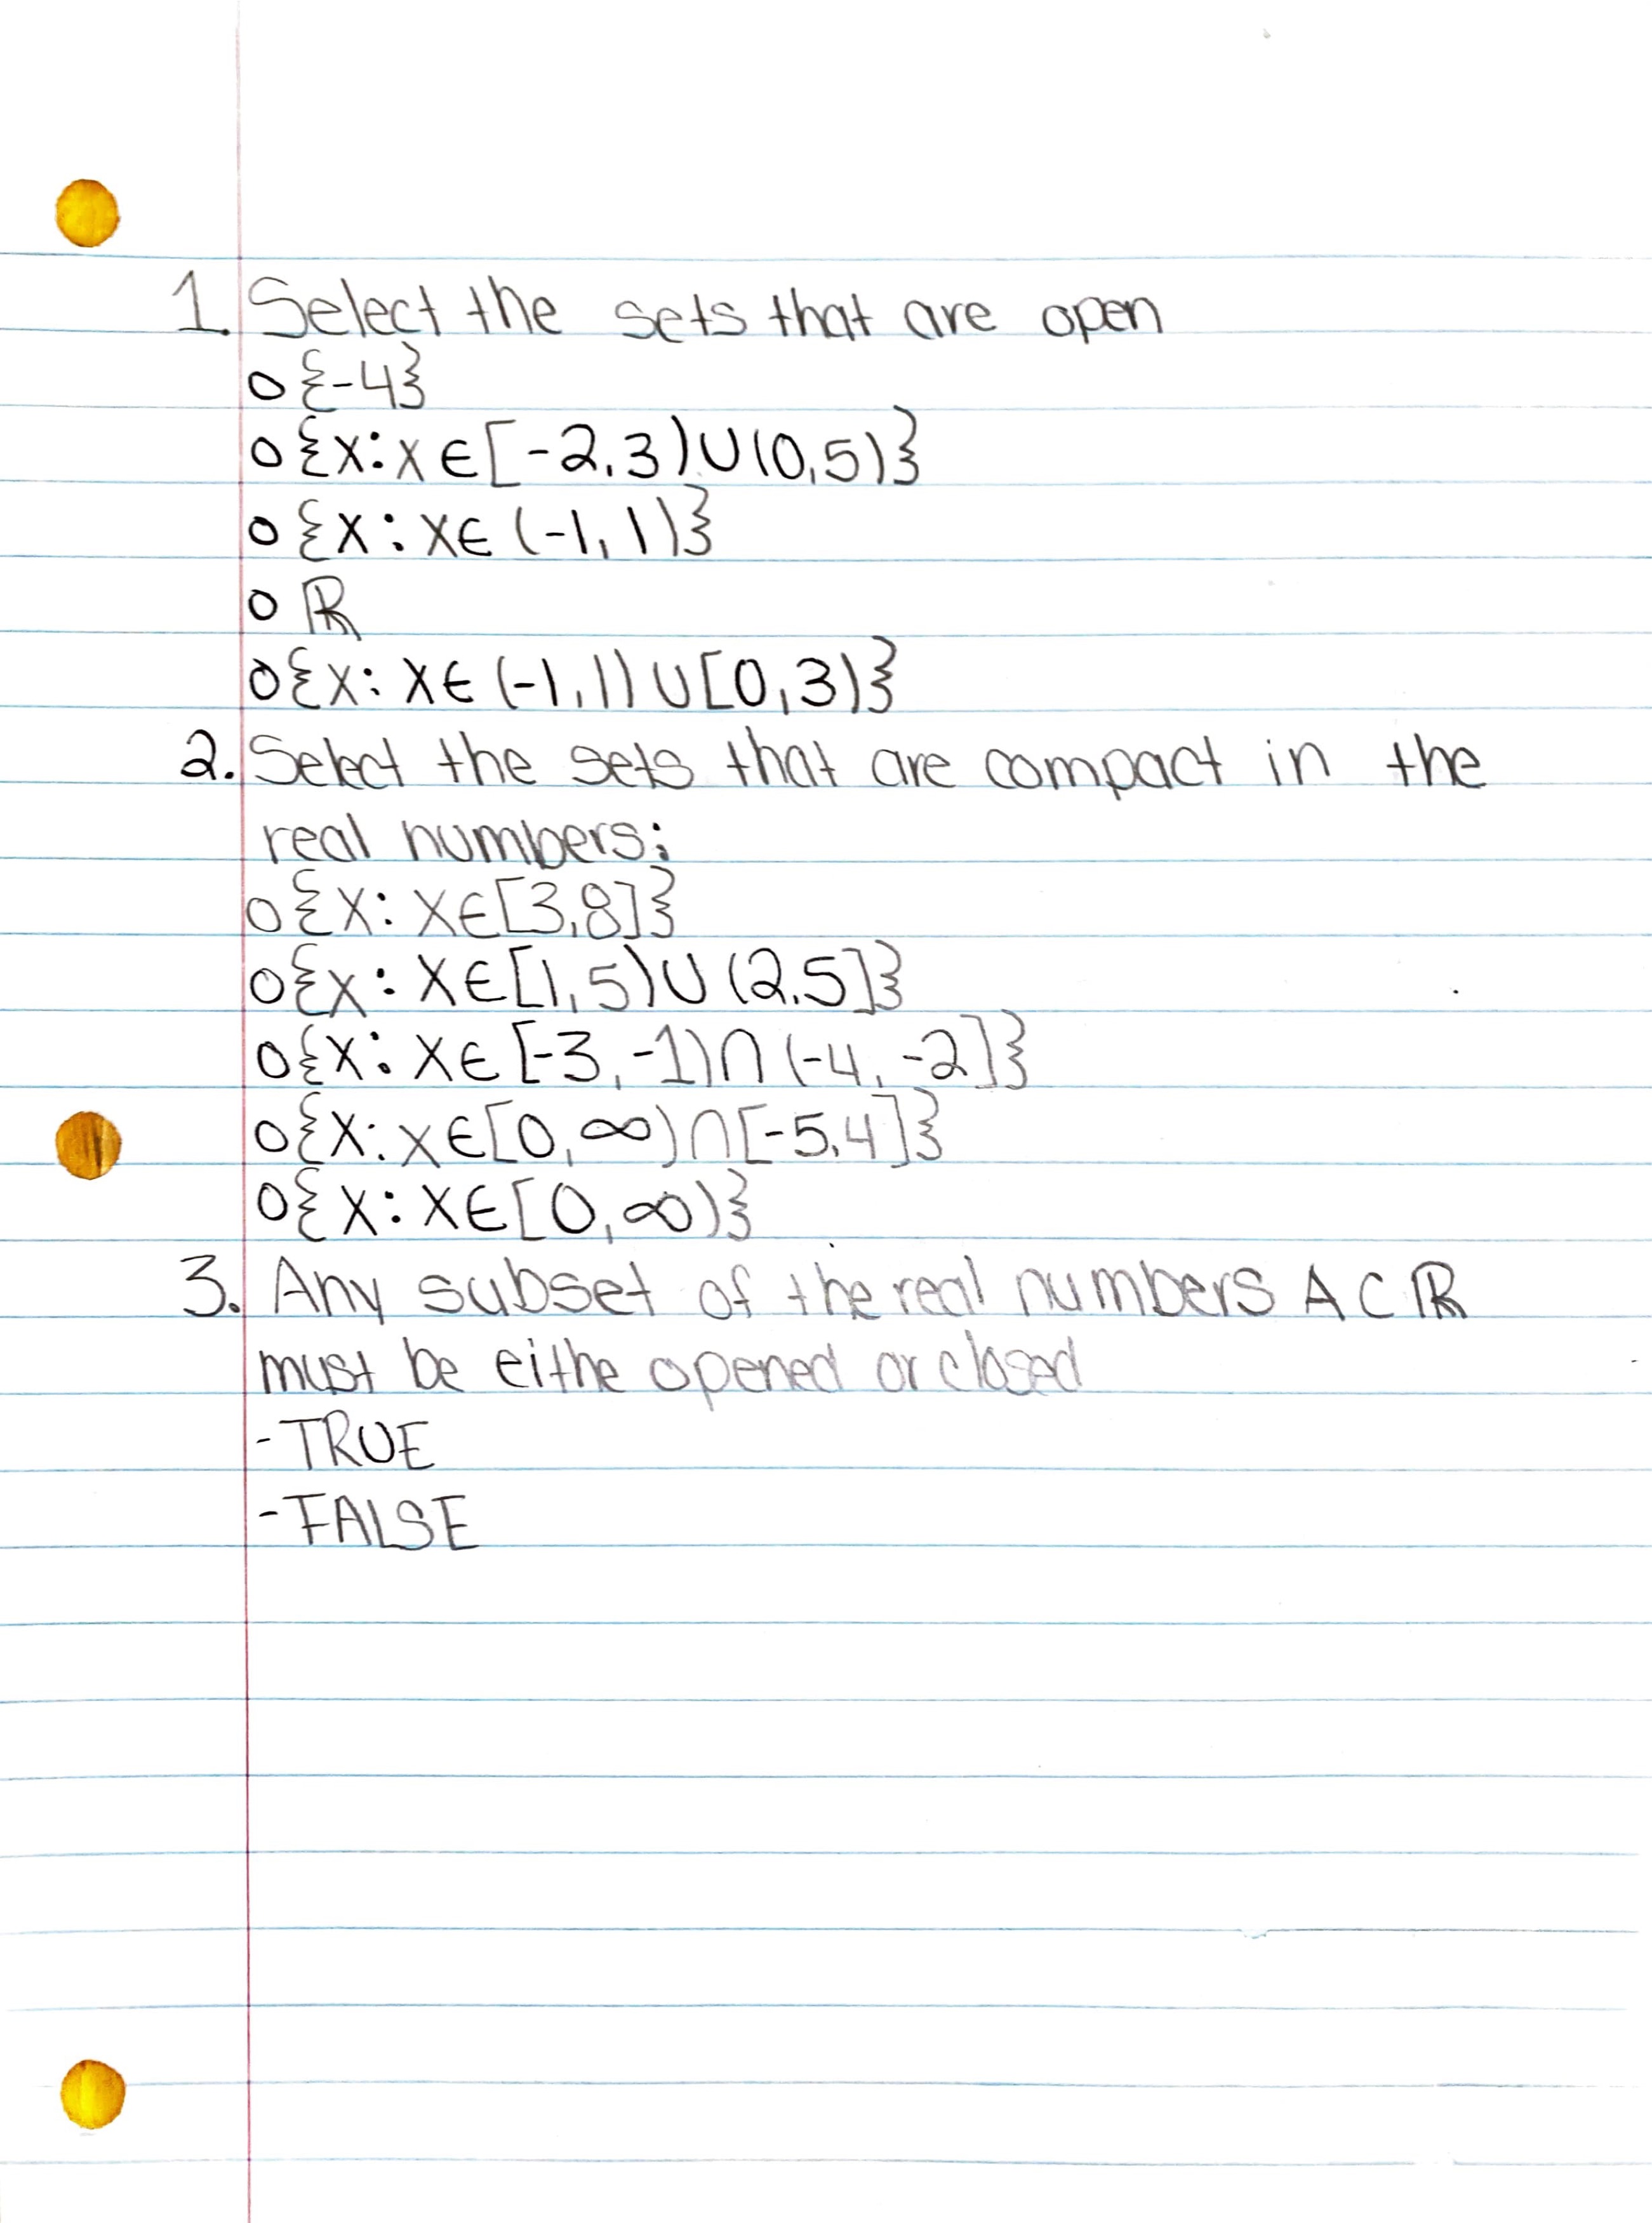 1. Select the sets that are open
o {-4}
o {x: x ∈ [-2,3) ∪ (0,5)}
o {x: x ∈ (-1,1)}
o ℝ
o {x: x ∈ (-1,1) ∪ [0,3)}
2. Select the sets that are compact in the
real numbers:
o {x: x ∈ [3,8]}
o {x: x ∈ [1,5) ∪ (2,5]}
o {x: x ∈ [-3,-1) ∩ (-4,-2]}
o {x: x ∈ [0,∞) ∩ [-5,4]}
o {x: x ∈ [0,∞)}
3. Any subset of the real numbers A ⊂ ℝ
must be eithe opened or closed
- TRUE
- FALSE